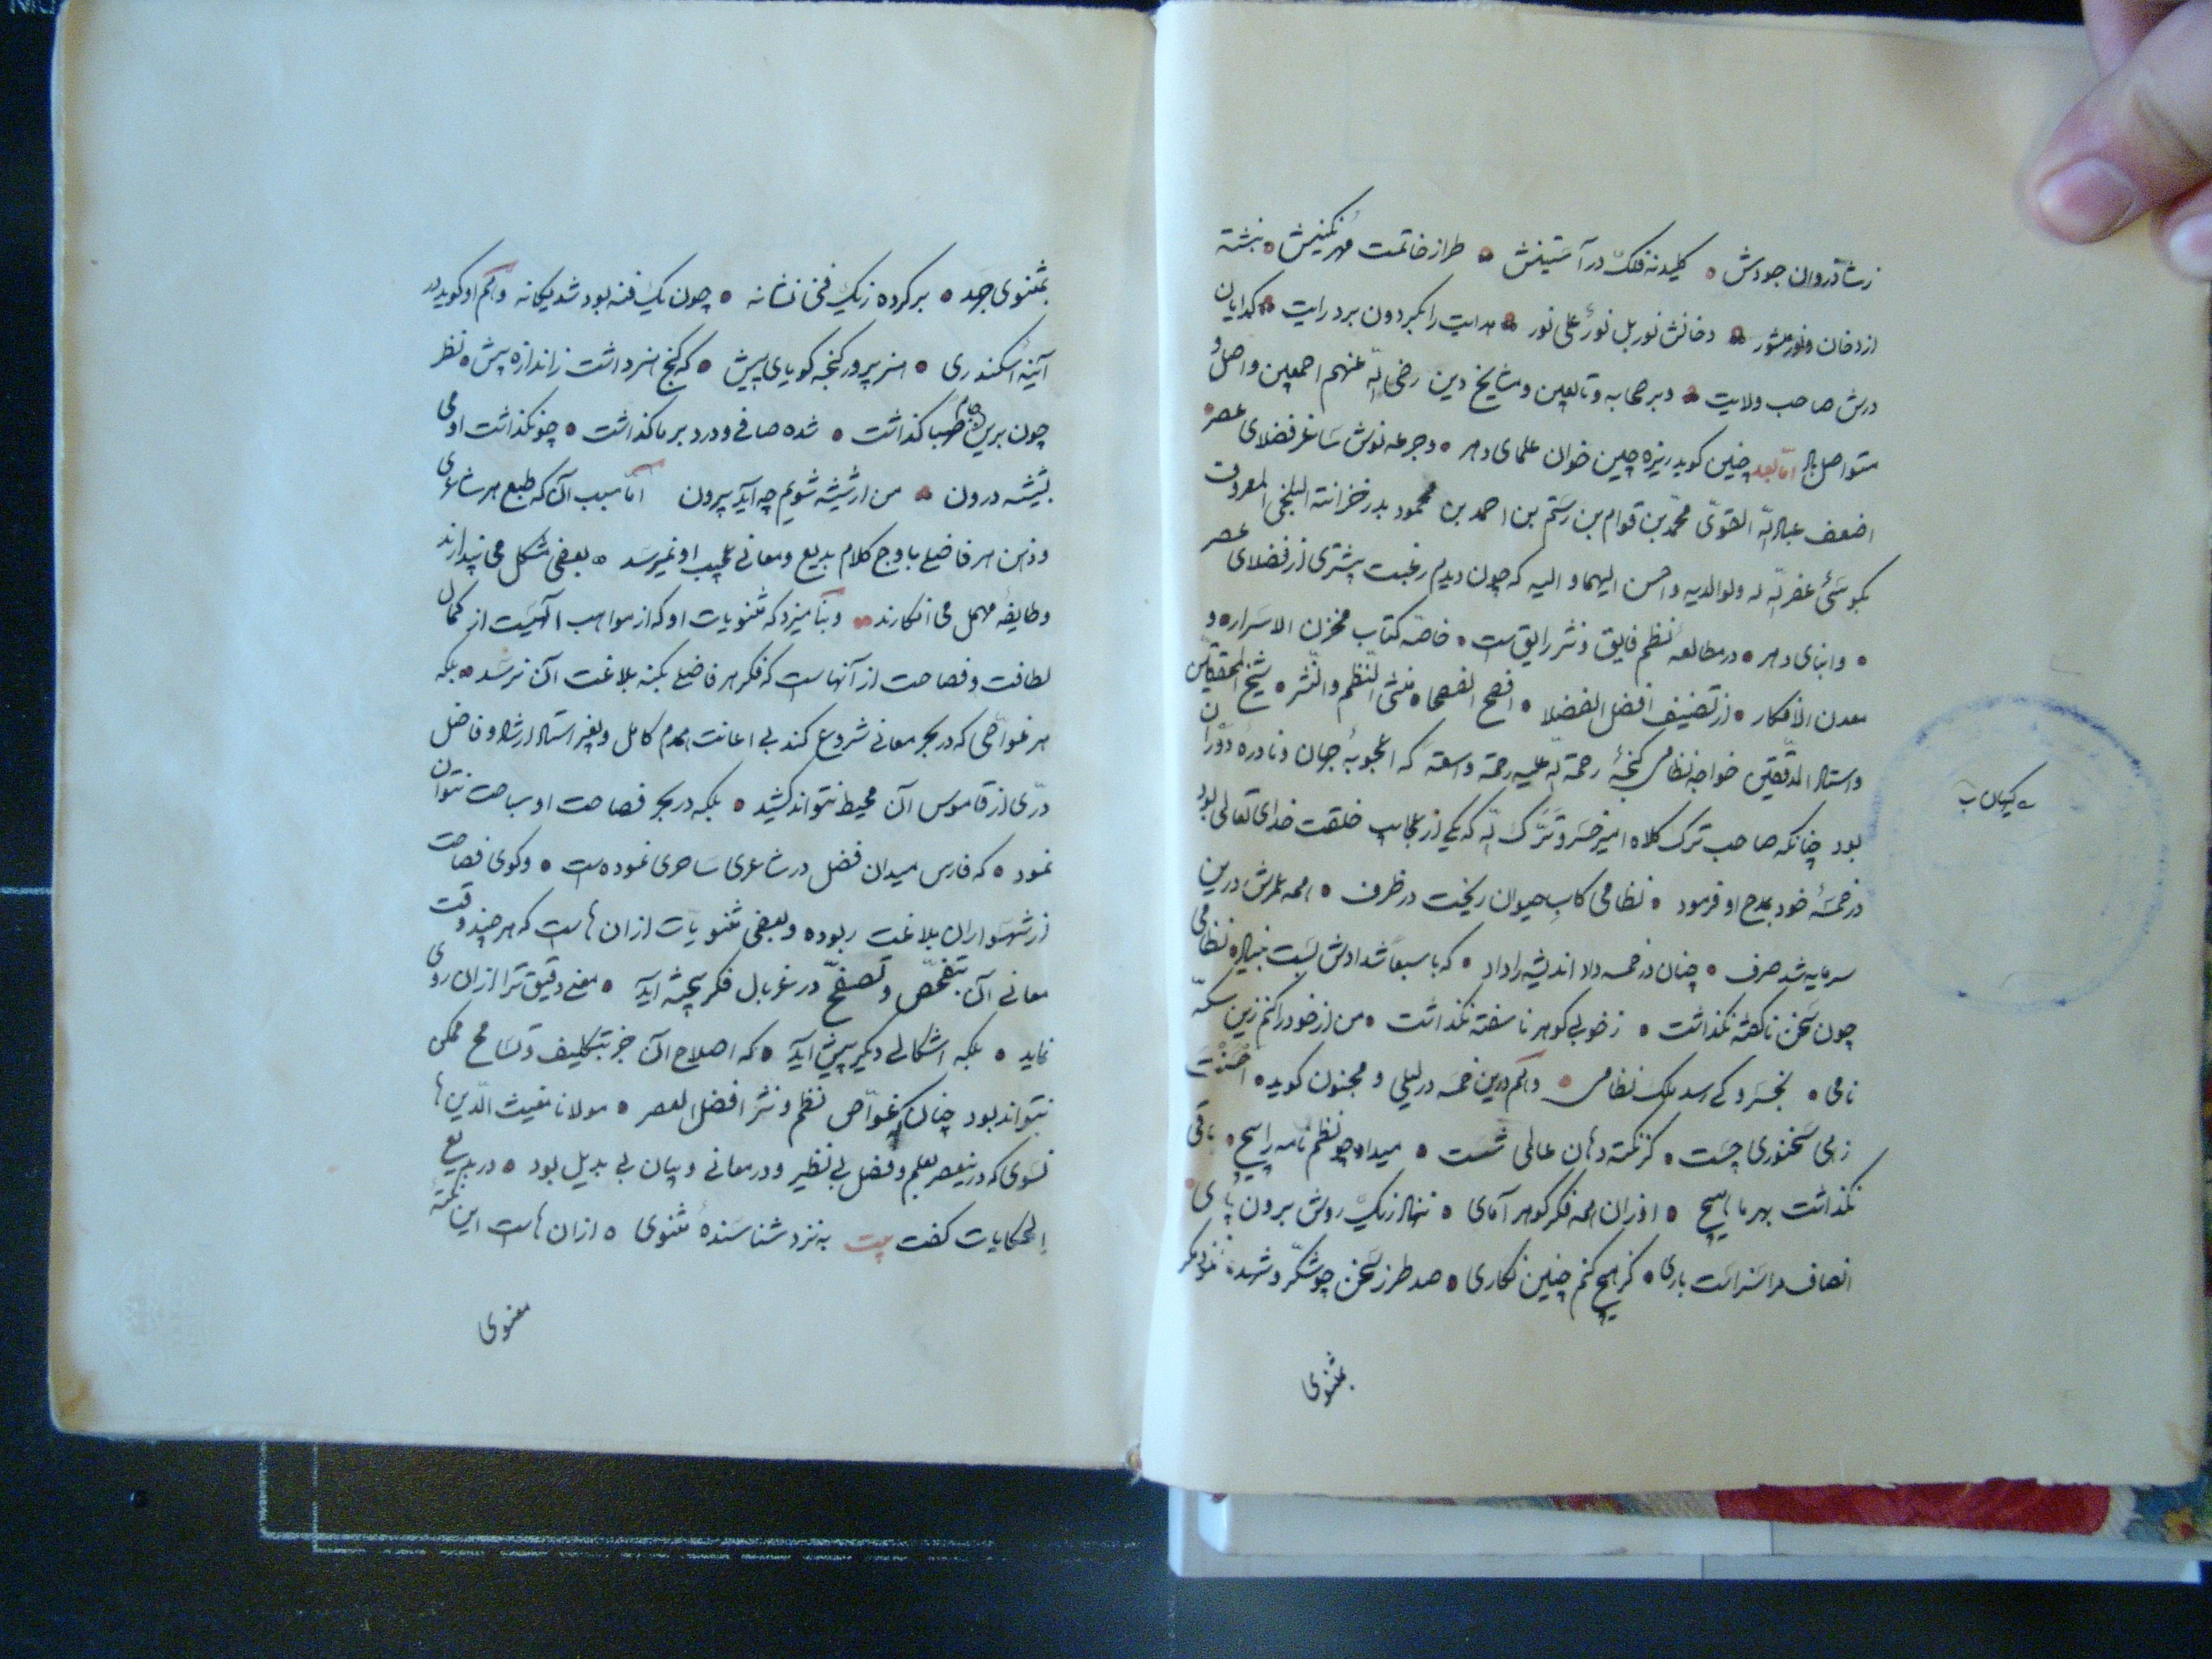 زشادروان جودش • کلید نه فلک در آستینش • طراز خاتمت مهر نگینش • نبشته
از دخان و نور منشور • دخانش نور بل نورٌ علی نور • هدایت را بگردون برد رایت • کدایان
درش صاحب ولایت • و بر صحابه و تابعین و مشایخ دین رضی الله عنهم اجمعین واصل و
متواصل باد اما بعد چنین کوید ریزه چین خوان علمای دهر • و جرعه نوش ساغر فضلای عصر •
اضعف عباد الله القوی محمد بن قوام بن رستم بن احمد بن محمود بدر خزانته البلخی المعروف
بکوسئی غفر الله له ولوالدیه و احسن الیهما و الیه که چون دیدم رغبت بیشتری از فضلای عصر
• و ابنای دهر • در مطالعه نظم فایق و نثر رایق است • خاصه کتاب مخزن الاسرار • و
معدن الافکار • از تصنیف افضل الفضلا • افصح الفصحا • منشی النظم والنثر • شیخ المحققین
و استاد المدققین خواجه نظامی کنجهٔ رحمة الله علیه رحمة واسعة که اعجوبهٔ جهان و نادرهٔ دوران
بود چنانکه صاحب ترک کلاه امیر خسرو ترک الله که یکی از عجایب خلقت خدای تعالی بود
در خمسهٔ خود بمدح او فرمود • نظامی کاب حیوان ریخت در ظرف • همه عمرش درین
سرمایه شد صرف • چنان در خمسه داد اندیشه را داد • که با سبعا شدادش بست بنیاد • نظامی
چون سخن ناکفته نکذاشت • ز خوبی کوهر ناسفته نکذاشت • من از خود را کنم زین سکه
نامی • بخسرو کی رسد ملک نظامی • و هم درین خمسه در لیلی و مجنون کوید • احسنت
زهی سخنوری چست • کز نکته دهان عالمی شست • میداد چو نظم نامه را پیچ • باقی
نکذاشت بهر ما هیچ • او زان همه فکر کوهر آمای • ننهاد ز یک روش برون پای •
انصاف مرا سزاست باری • کز هیچ کنم چنین نکاری • صد طرز سخن چو شکر و شهد •
بمثنوی
بمثنوی جهد • بر کرده ز یک فنی نشانه • چون یک فنه بود شد یکانه و هم او کوید در
آینهٔ اسکندری • هنر پرور کنجه کویای پیش • که کنج هنر داشت ز اندازه پیش • نظر
چون برین جام صهبا کذاشت • شده صافی و درد بر ما کذاشت • چو نکذاشت او می
بشیشه درون • من ار شیشه شویم چه آید بیرون اما سبب آن که طبع هر شاعری
و ذهن هر فاضلی باوج کلام بدیع و معانی عجیب او نمیرسد • بعضی مشکل می پندارند
و طایفهٔ مهمل می انکارند • و بنامیزد که مثنویات او که از مواهب الهیست از کمال
لطافت و فصاحت از آنهاست که فکر هر فاضلی بکنه بلاغت آن نرسد • بلکه
هر غواصی که در بحر معانی شروع کند بی اعانت همدم کامل و بغیر استاد ارشاد فاضل
دری از قاموس آن محیط نتواند کشید • بلکه در بحر فصاحت او سباحت نتوان
نمود • که فارس میدان فضل در شاعری ساحری نموده است • و کوی فصاحت
از شهسواران بلاغت ربوده و بعضی مثنویات ازان هاست که هر چند وقت
معانی آن بتفحص و تصفح در غربال فکر بیخته آید • معنی دقیق ترا ازان روی
نماید • بلکه اشکالی دیکر پیش آید • که اصلاح آن جز بتکلیف و تسامح ممکن
نتواند بود چنان که غواص نظم و نثر افضل العصر • مولانا مغیث الدین ها
نسوی که در ینعصر بعلم و فضل بی نظیر و در معانی و بیان بی بدیل بود • در بدیع
الحکایات کفت بیت به نزد شناسندهٔ مثنوی • ازان هاست این نکتهٔ
معنوی